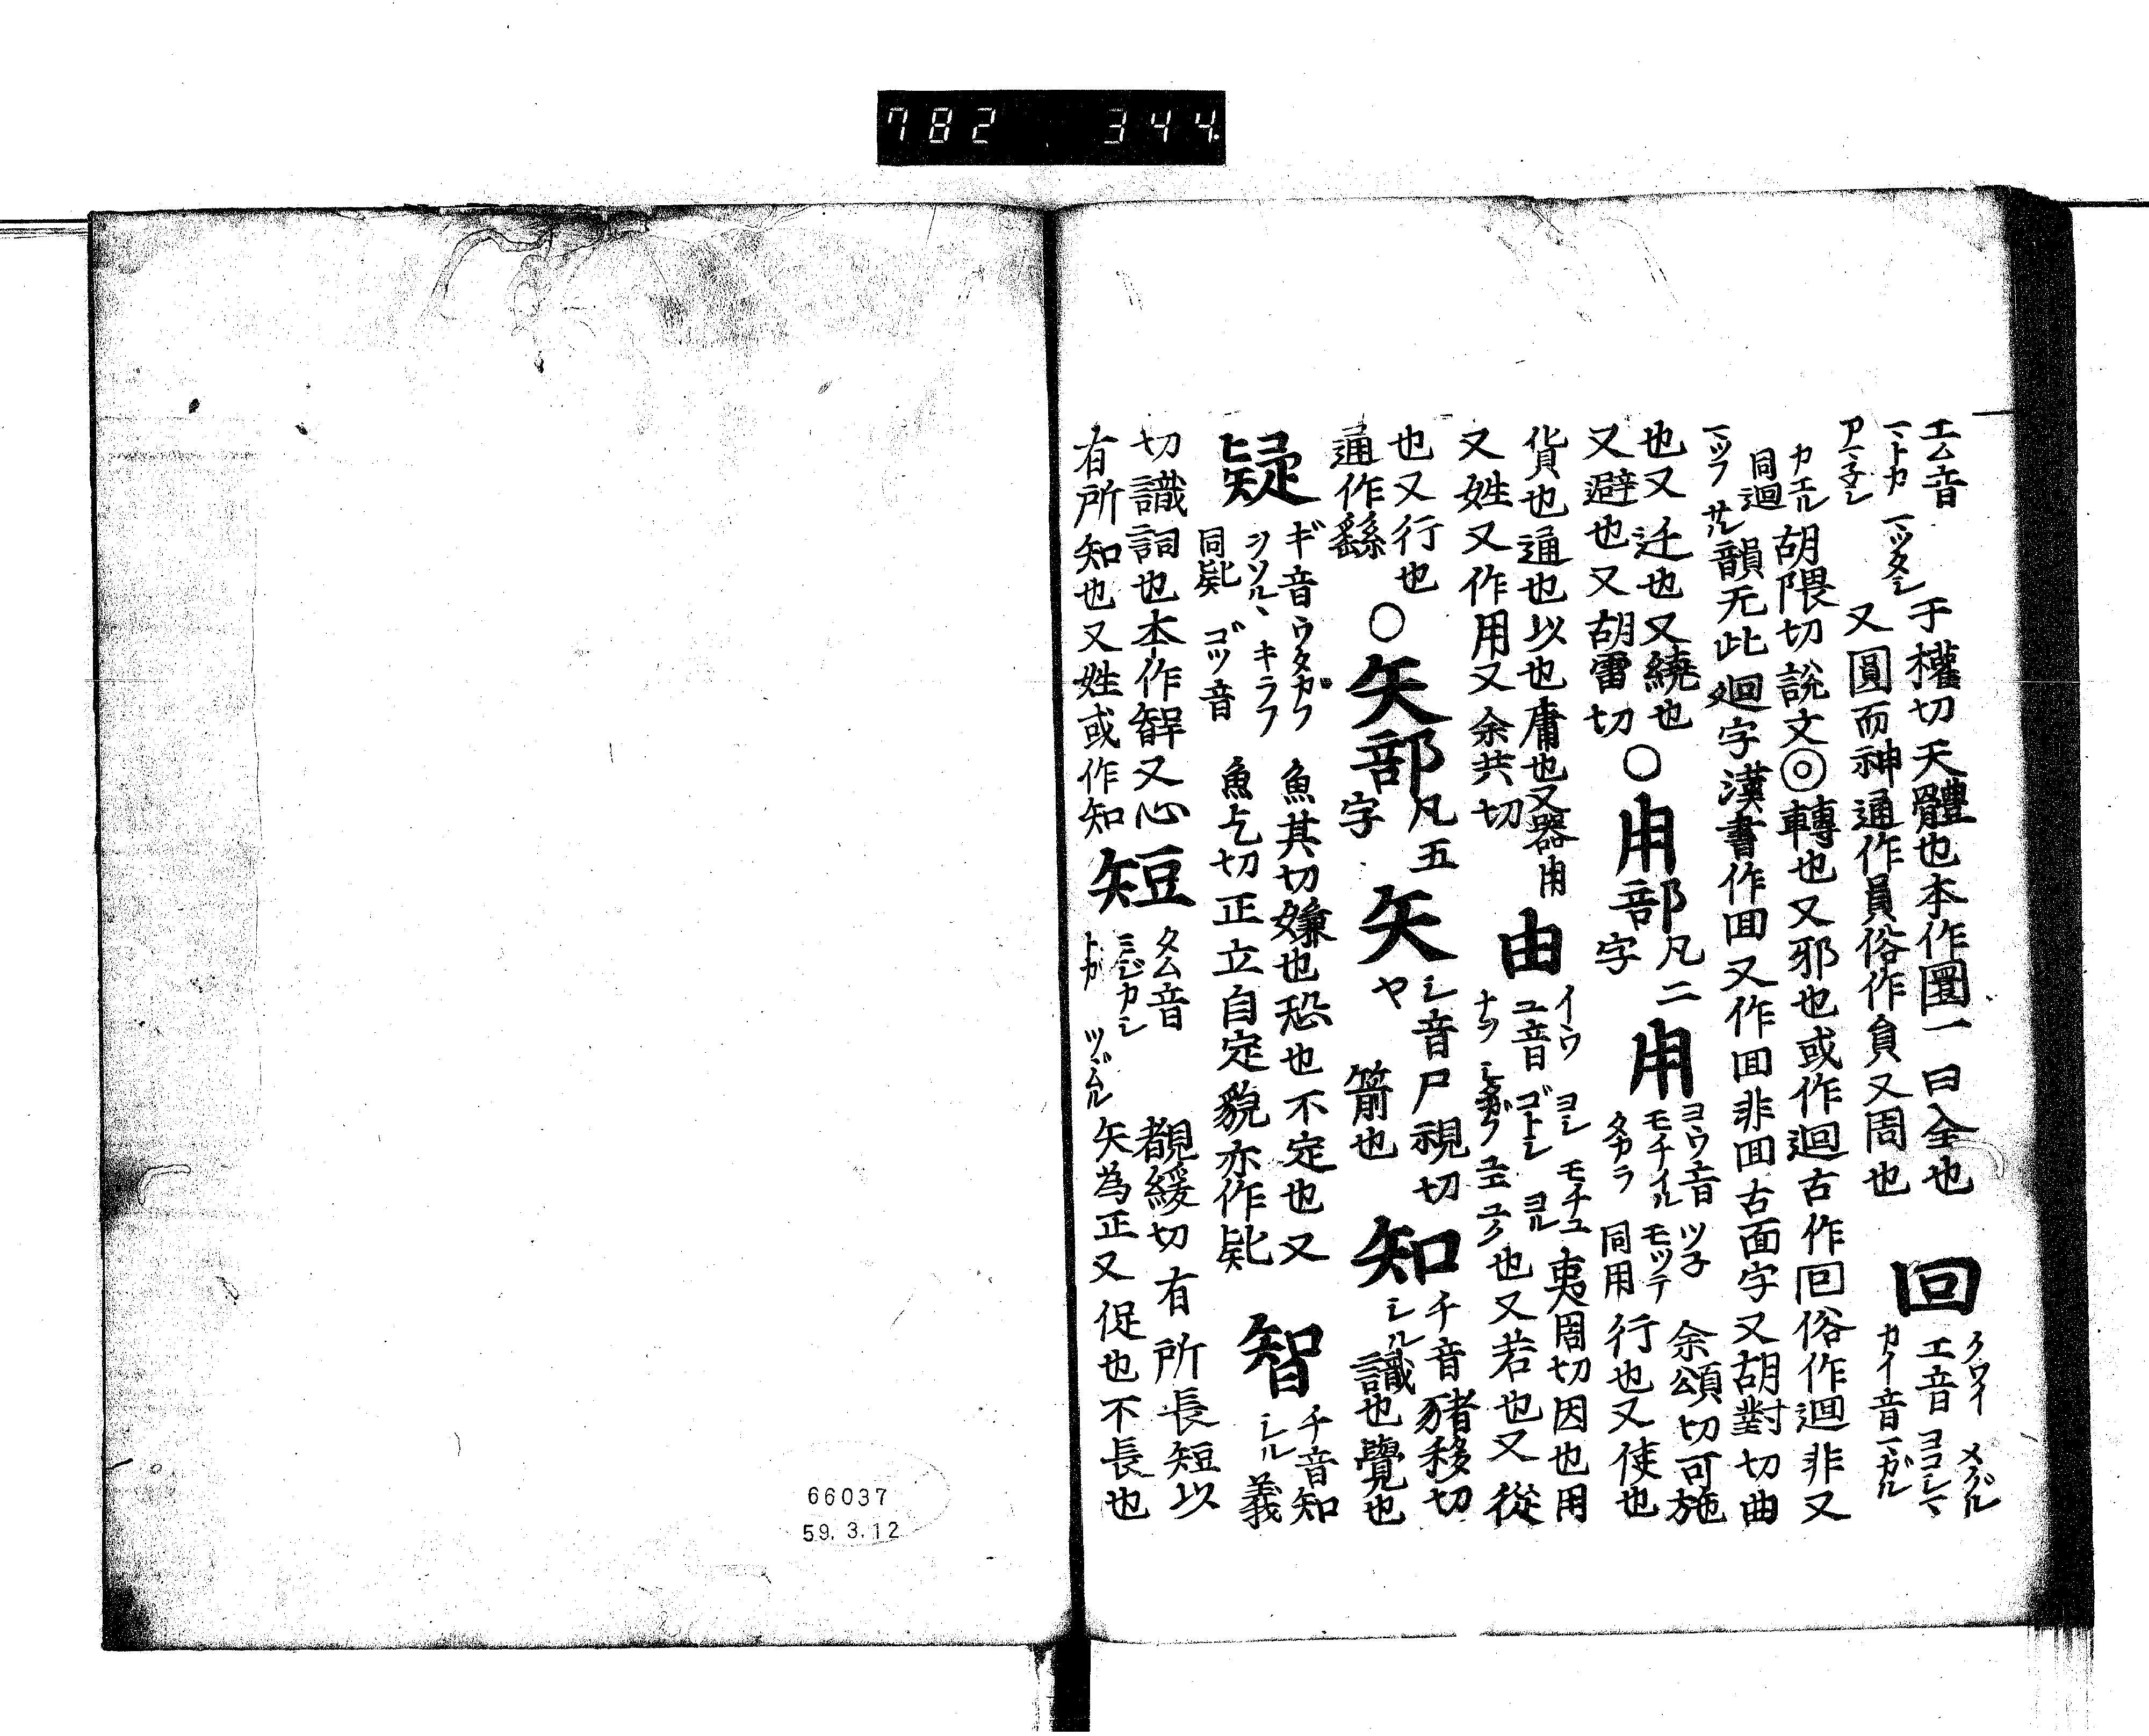 782 344
エム音 マトカ マツタシ
于權切天體也本作圜一曰全也
又圓而神通作員俗作貟又周也
回
クワイ メグル
エ音 ヨコシマ
カイ音 マガル
カエル 同迴
胡隈切說文◎轉也又邪也或作迴古作囘俗作逥非又
マツフ サル
韻无此廻字漢書作囬又作囬非囬古面字又胡對切曲
也又迂也又繞也
又避也又胡雷切
○用部凡二字
用
ヨウ音 ツ子
モチイル モツテ
タカラ 同用
余頌切可施
行也又使也
貨也通也以也庸也又器用
又姓又作用又余共切
由
イウ ヨシ モチユ
ユ音 ゴトシ ヨル
夷周切因也用
也又若也又從
也又行也
通作繇
○矢部凡五字
矢
シ音尸視切
ヤ 箭也
知
チ音豬移切
シル識也覺也
疑
ギ音ウタガフ
同㠜 ゴツ音
魚其切嫌也恐也不定也又
魚乞切正立自定貌亦作
智
チ音知
シル義
切識詞也本作又心
有所知也又姓或作知
短
タム音
ミジカシ
ツヾムル
覩緩切有所長短以
矢為正又促也不長也
66037
59.3.12